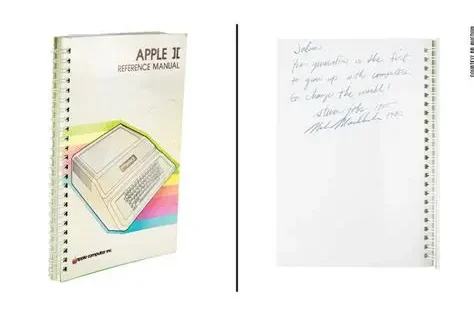 APPLE II
REFERENCE MANUAL
apple computer inc.
Julian
Your generation is the first
to grow up with computers
to change the world!
steven jobs 1980
Mike Markkula 1980
COURTESY RR AUCTION